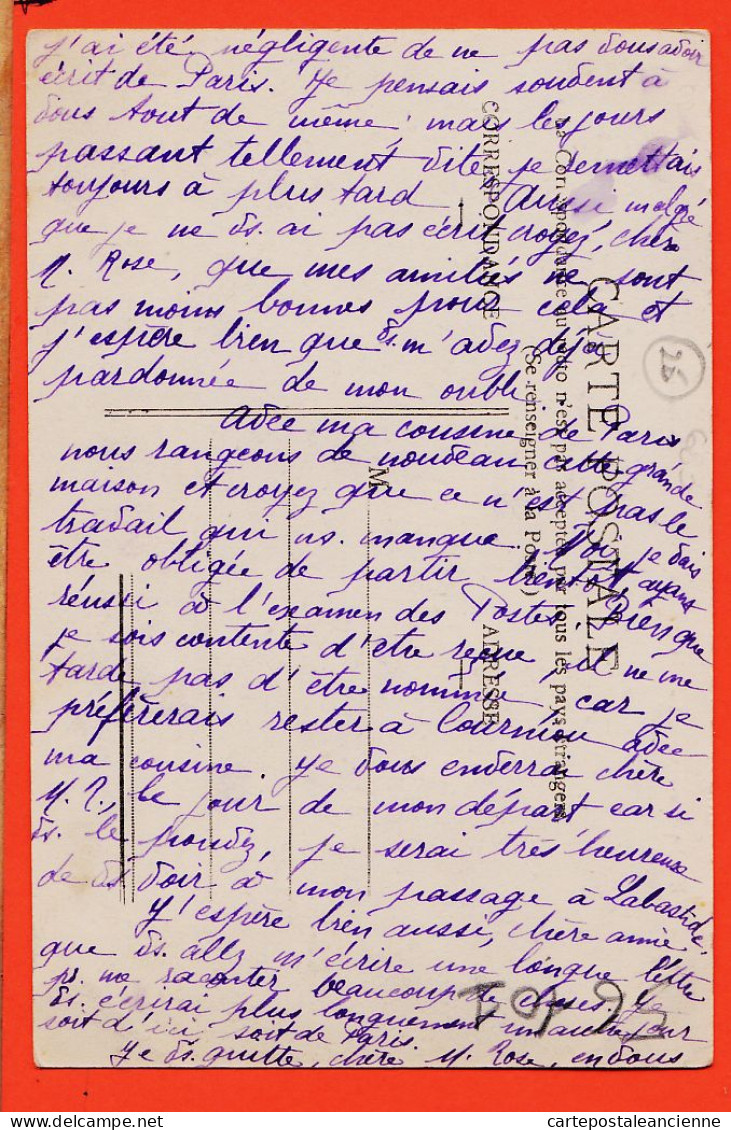 j'ai été négligente de ne pas vous avoir
écrit de Paris. Je pensais souvent à
vous tout de même ; mais les jours
passant tellement vite je remettais
toujours à plus tard. Aussi malgré
que je ne vs. ai pas écrit croyez, chère
M. Rose, que mes amitiés ne sont
pas moins bonnes pour cela et
j'espère bien que vs. m'avez déjà
pardonnée de mon oubli.
Avec ma cousine de Paris
nous rangeons de nouveau cette grande
maison et croyez que ce n'est pas le
travail qui ns. manque. Moi je vais
être obligée de partir bientôt ayant
réussi à l'examen des Postes. Bien que
je sois contente d'être reçue, il ne me
tarde pas d'être nommée car je
préfèrerais rester à Courniou avec
ma cousine. Je vous enverrai chère
M. R., le jour de mon départ car si
vs. le pouvez, je serai très heureuse
de vs. voir à mon passage à Labastide.
J'espère bien aussi, chère amie
que vs. allez m'écrire une longue lettre
pr. me raconter beaucoup de choses. Je
vs. écrirai plus longuement un autre jour
soit d'ici, soit de Paris.
Je vs. quitte, chère M. Rose, en vous
CARTE POSTALE
La Correspondance au recto n'est pas acceptée par tous les pays étrangers
(Se renseigner à la Poste)
CORRESPONDANCE
ADRESSE
M
25
delcampe.net
cartepostaleancienne